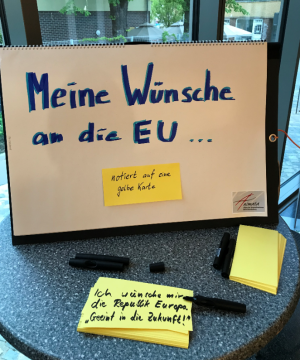 Meine Wünsche
an die EU ...
notiert auf eine
gelbe Karte
Ich wünsche mir
die Republik Europa
"Geeint in die Zukunft!"